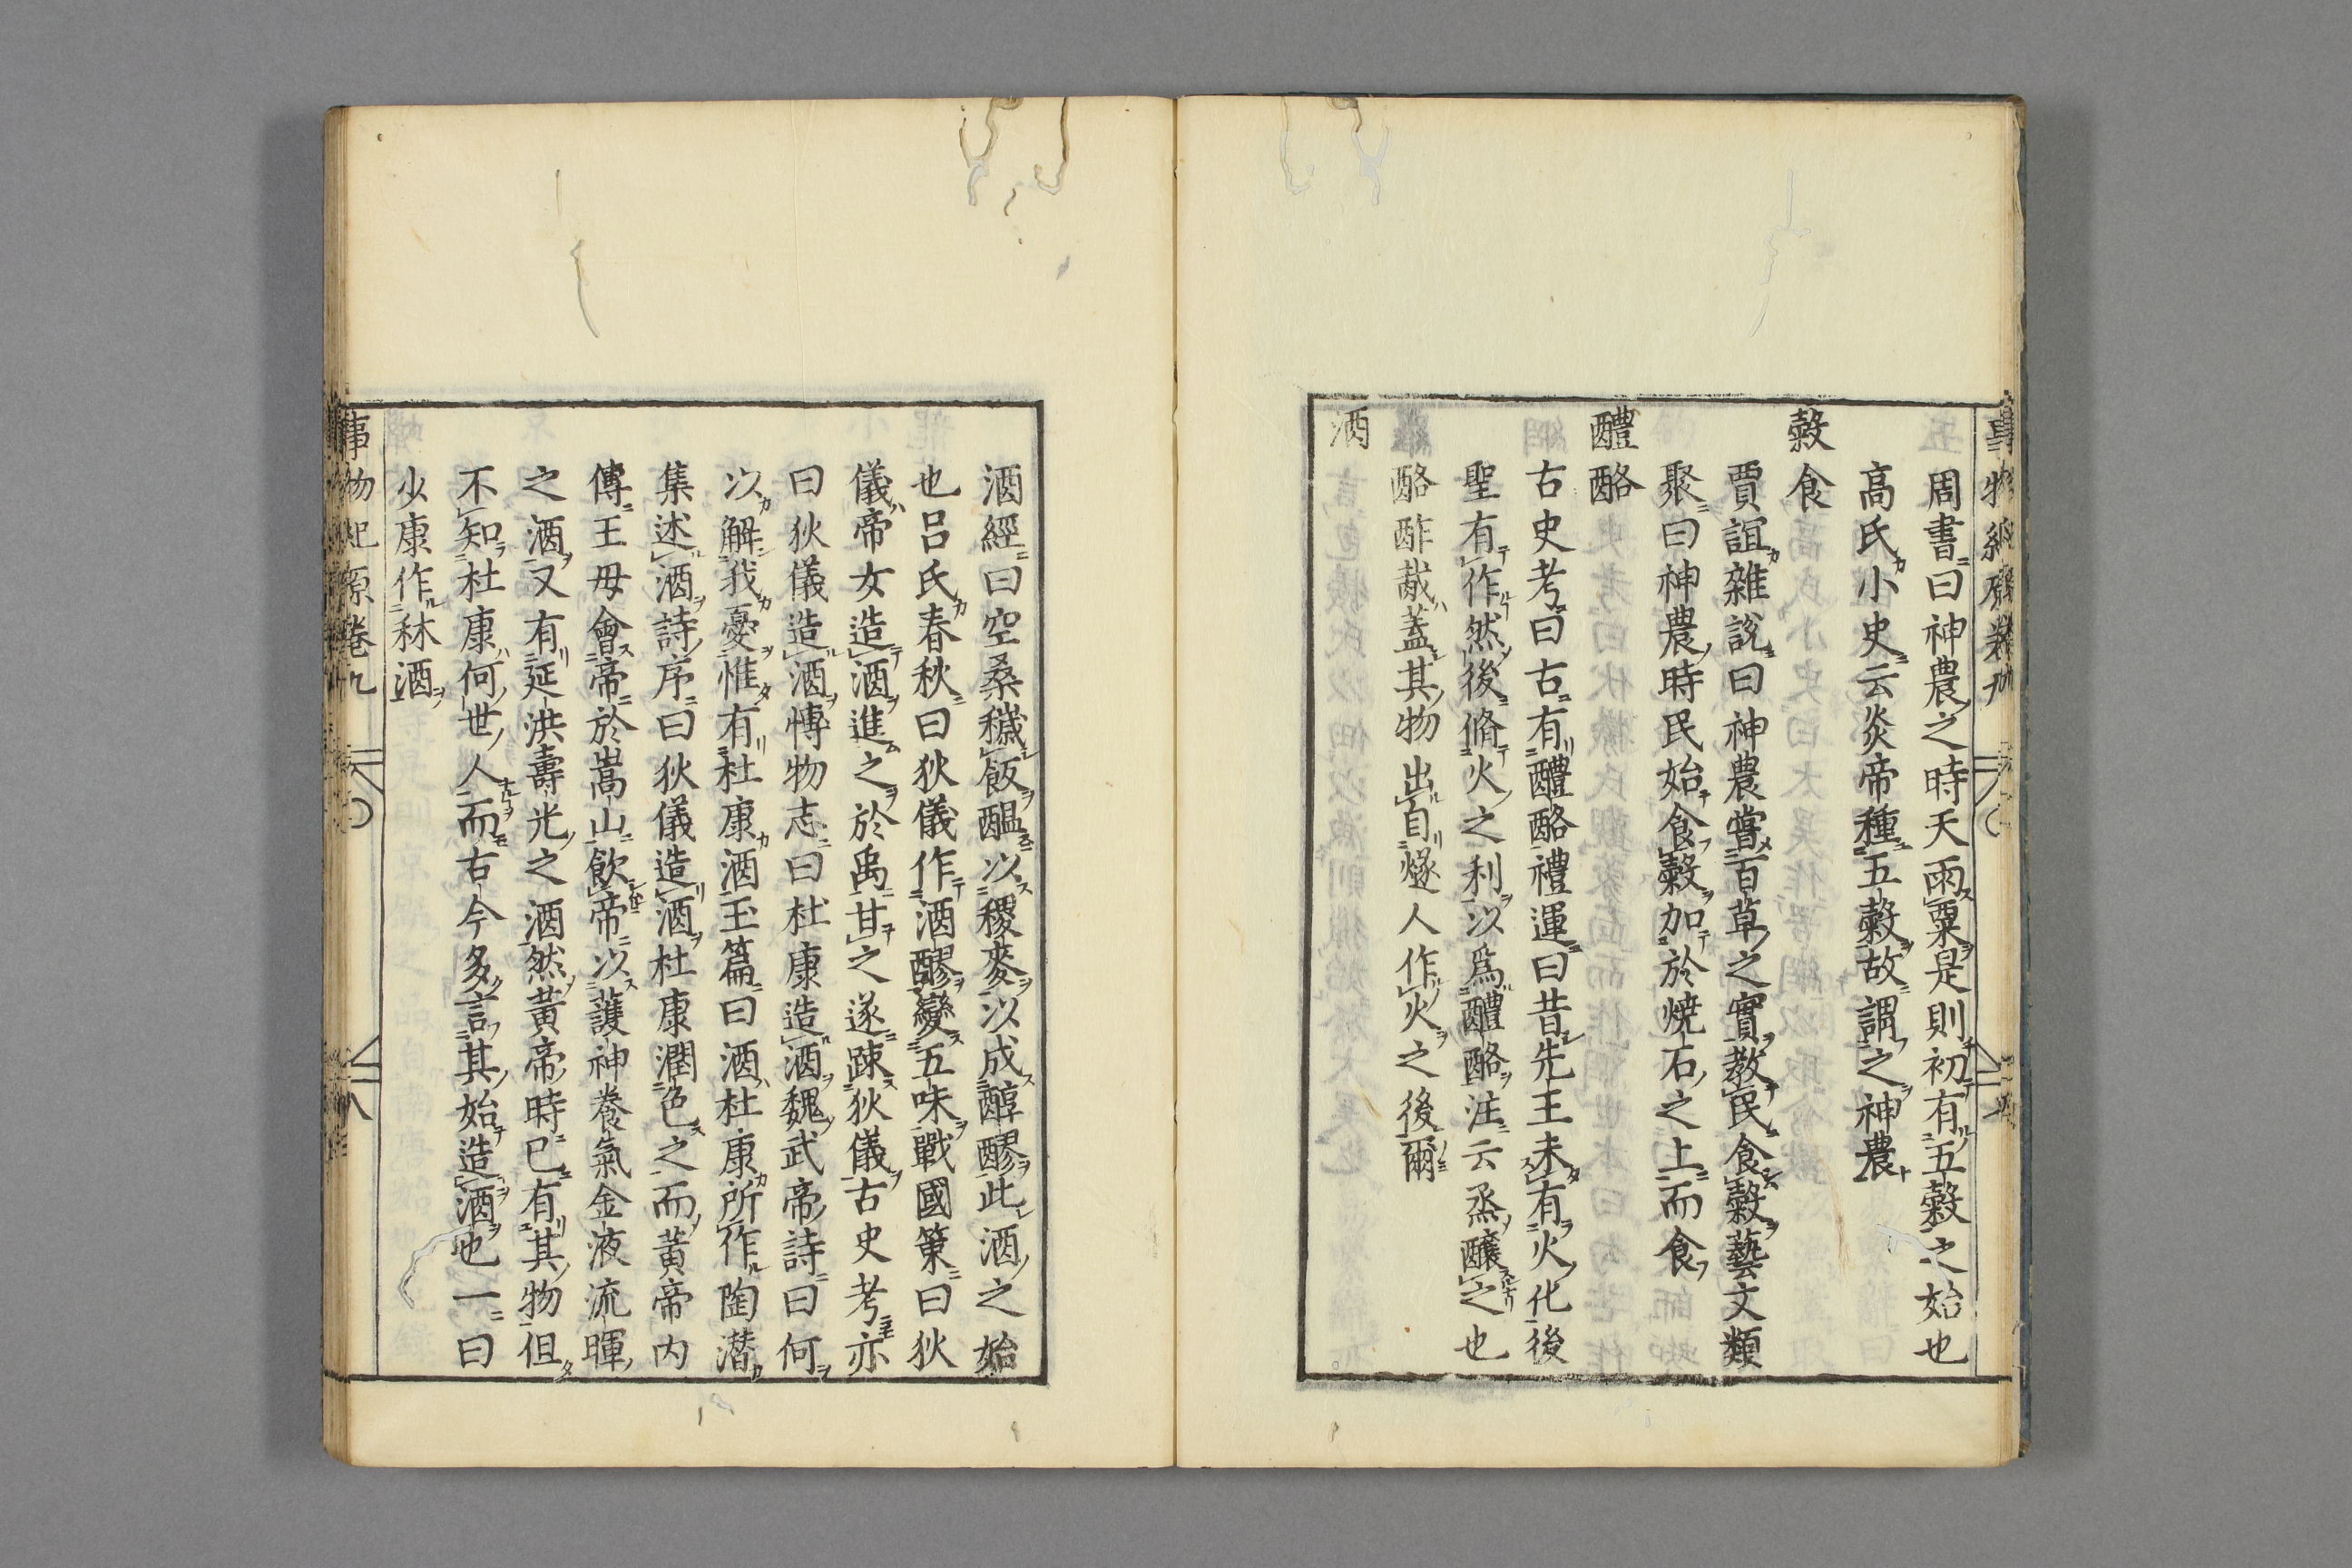 周書曰神農之時天雨粟是則初有五穀之始也
高氏小史云炎帝種五穀故謂之神農
穀食
賈誼雜説曰神農嘗百草之實教民食穀藝文類
聚曰神農時民始食穀加於燒石之上而食
醴酪
古史考曰古有醴酪禮運曰昔先王未有火化後
聖有作然後脩火之利以爲醴酪注云烝釀之也
酪酢蔵蓋其物出自燧人作火之後爾
酒
酒經曰空桑穢飯醞以稷麥以成醇醪此酒之始
也呂氏春秋曰狄儀作酒醪變五味戰國策曰狄
儀帝女造酒進之於禹甘之遂踈狄儀古史考亦
曰狄儀造酒愽物志曰杜康造酒魏武帝詩曰何
以解我憂惟有杜康酒玉篇曰酒杜康所作陶潜
集述酒詩序曰狄儀造酒杜康潤色之而黃帝内
傳王母會帝於嵩山飲帝以護神養氣金液流暉
之酒又有延洪壽光之酒然黃帝時已有其物但
不知杜康何世人而古今多言其始造酒也一曰
少康作秫酒
事物紀原卷九